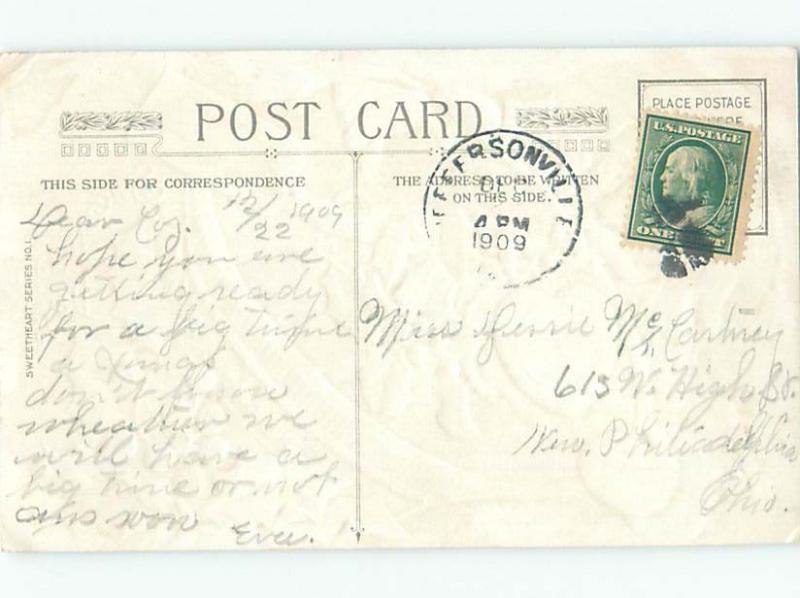 POST CARD
PLACE POSTAGE
HERE
U.S. POSTAGE
ONE CENT
JEFFERSONVILLE
DEC
4 PM
1909
THIS SIDE FOR CORRESPONDENCE
THE ADDRESS TO BE WRITTEN
ON THIS SIDE.
SWEETHEART SERIES NO.1.
12/22 1909
Dear Coz.
hope you are
getting ready
for a big time
a Xmas
don't know
wheather we
will have a
big time or not
ans soon
Eva.
Miss Jessie McCartney
613 W. High St.
New Philiadelphia
Ohio.